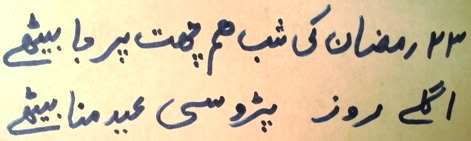 ۲۳ رمضان کی شب ھم چھت پر جا بیٹھے
اگلے روز پڑوسی عید منا بیٹھے